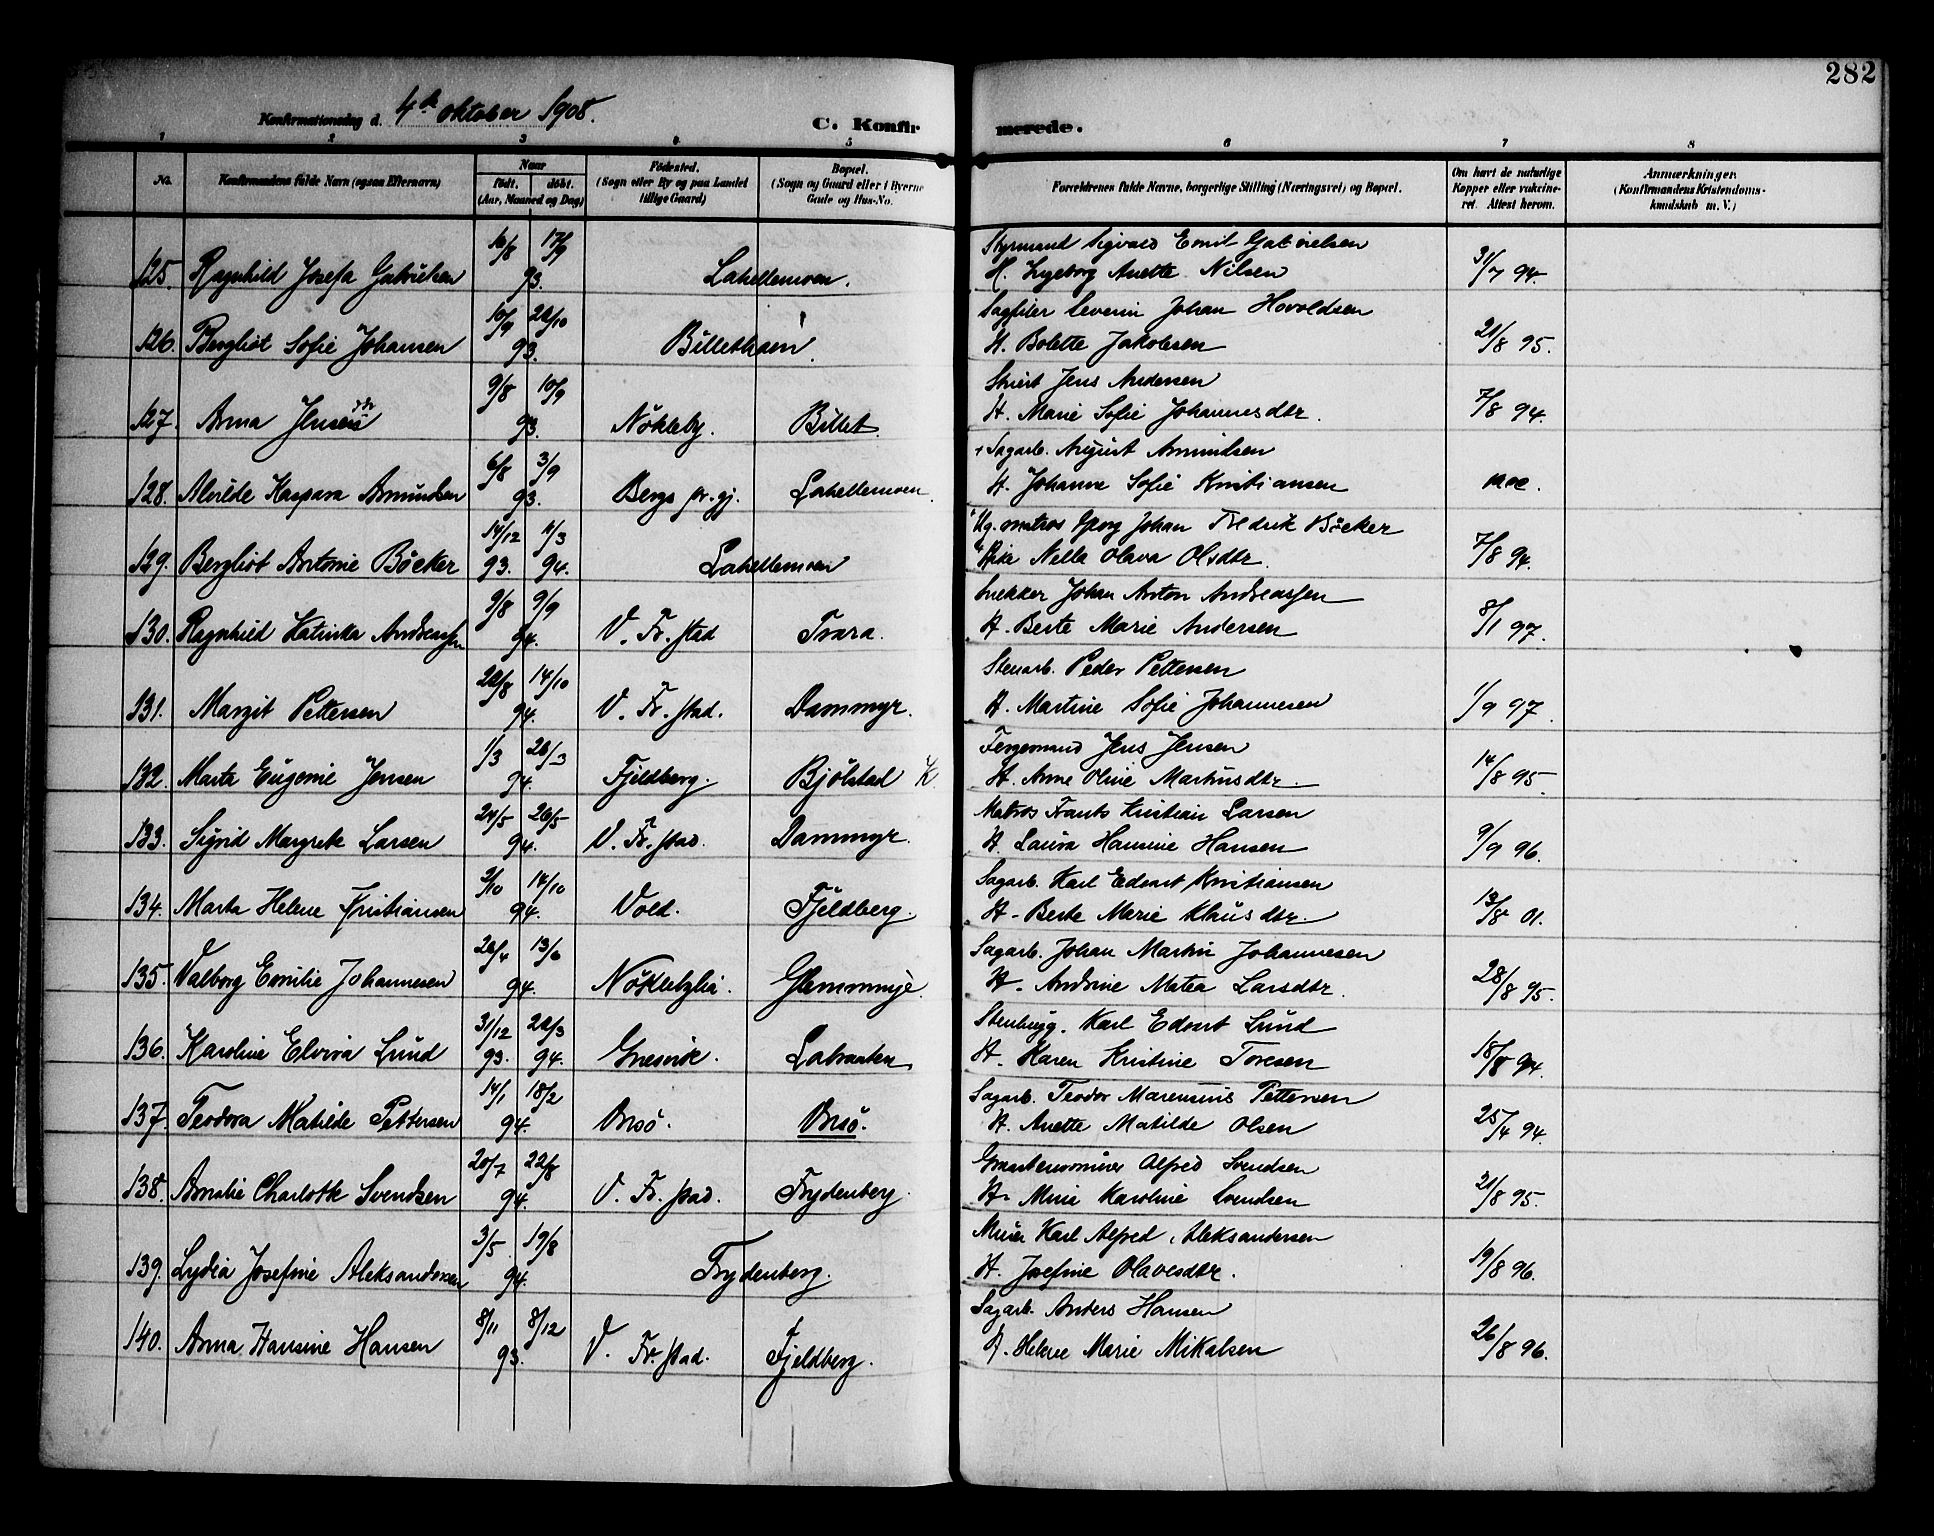 282
Konfirmationsdag d. 4de oktober 1908.
C. Konfirmerede.
1 2 3 4 5 6 7 8
No.
Konfirmandens fulde Navn (ogsaa Efternavn)
Naar
født. døbt.
(Aar, Maaned og Dag)
Fødested.
(Sogn eller By og paa Landet
tillige Gaard)
Bopæl.
(Sogn og Gaard eller i Byerne
Gade og Hus-No.
Forældrenes fulde Navne, borgerlige Stilling (Næringsvei) og Bopæl.
Om havt de naturlige
Kopper eller vakcine-
ret. Attest herom.
Anmærkninger.
(Konfirmandens Kristendoms-
kundskab m. V.)
16/8 17/9 Styrmand Sigvald Emil Gabrielsen
125. Ragnhild Josefa Gabrielsen 93. Lahellemoen. H. Ingeborg Anette Nilsen 31/7 94.
10/9 22/10 Sagfiler Severin Johan Havoldsen
126. Bergliot Sofie Johansen 93. H. Bolette Jakobsen 21/8 95.
9/8 10/9 Jens Andersen
127. Anna Jensen 93. Nökleby. Billet. H. Marie Sofie Johannesdtr. 7/8 94.
6/8 3/9 + Sagarb. August Amundsen
128. Kaspara Amundsen 93. Bergs pr.gj. Lahellemoen. H. Johanne Sofie Kristiansen
14/12 11/3 Ug. matros Georg Johan Fredrik Böcker
129. Bergliot Antonie Böcker 93. 94. Lahellemoen Pike Nella Olava Olsdtr. 7/8 94.
9/8 9/9 Snekker Johan Anton Andreassen
130. Ragnhild Katinka Andreassen 94. V. Fr. stad Trara. H. Berte Marie Andersen 8/1 97.
22/8 14/10 Stenarb. Peder Pettersen
131. Margit Pettersen 94. V. Fr. stad. Dammyr. H. Martine Sofie Johannesen 1/9 97.
1/3 26/3 Fergemand Jens Jensen
132. Marta Eugenie Jensen 94. Fjeldberg. Bjölstad K. H. Anne Oline Martinusdtr. 14/8 95.
24/5 26/5 Matros Frants Kristian Larsen
133. Sigrid Margrete Larsen 94. V. Fr. stad. Dammyr. H. Laura Hansine Hansen 9/9 96.
2/10 14/10 Sagarb. Karl Edvart Kristiansen
134. Marta Helene Kristiansen 94. Vold. Fjeldberg. H. Berte Marie Klausdtr. 13/8 01.
22/4 13/6 Sagarb. Johan Martin Johannesen
135. Valborg Emilie Johannesen 94. Nöklebylia. Glemminge. H. Andrine Matea Larsdtr. 28/8 95.
31/12 22/3 Stenhugg. Karl Edvart Lund
136. Karoline Elvira Lund 93. 94. Gresvik. Labraaten H. Karen Kristine Toresen 18/8 94.
14/1 18/2 Sagarb. Teodor Marensius Pettersen
137. Teodora Matilde Pettersen 94. Ørsö. Ørsö. H. Anette Matilde Olsen 25/4 94.
20/7 22/8 Graastensminer Alfred Svendsen
138. Amalie Charlotte Svendsen 94. V. Fr. stad. Frydenberg. H. Mina Karoline Svendsen 21/8 95.
3/5 19/8 Murer Karl Alfred Aleksandersen
139. Lydia Josefine Aleksandersen 94. Frydenberg. H. Josefine Olavesdtr. 19/8 96.
8/11 8/12 Sagarb. Anders Hansen
140. Anna Hansine Hansen 93. V. Fr. stad. Fjeldberg. H. Helene Marie Mikalsen 26/8 96.